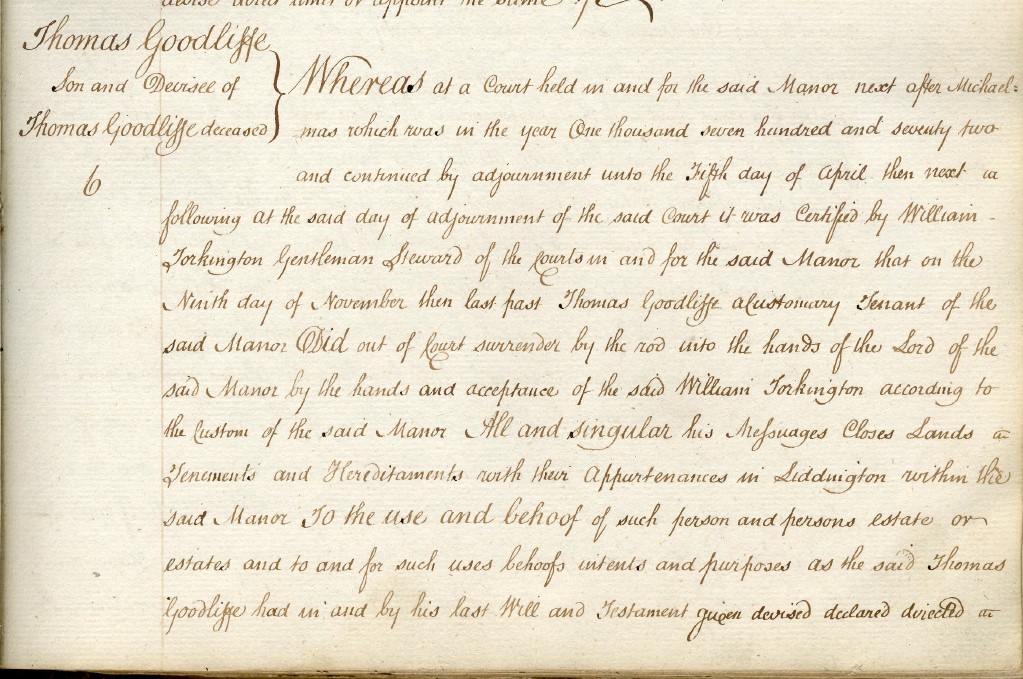 devise direct limit or appoint the same
Thomas Goodliffe
Son and Devisee of
Thomas Goodliffe deceased
6
Whereas at a Court held in and for the said Manor next after Michael=
mas which was in the year One thousand seven hundred and seventy two
and continued by adjournment unto the Fifth day of April then next
following at the said day of adjournment of the said Court it was Certified by William
Torkington Gentleman Steward of the Courts in and for the said Manor that on the
Ninth day of November then last past Thomas Goodliffe a Customary Tenant of the
said Manor Did out of Court surrender by the rod into the hands of the Lord of the
said Manor by the hands and acceptance of the said William Torkington according to
the Custom of the said Manor All and singular his Messuages Closes Lands
Tenements and Hereditaments with their Appurtenances in Liddington within the
said Manor To the use and behoof of such person and persons estate or
estates and to and for such uses behoofs intents and purposes as the said Thomas
Goodliffe had in and by his last Will and Testament given devised declared directed